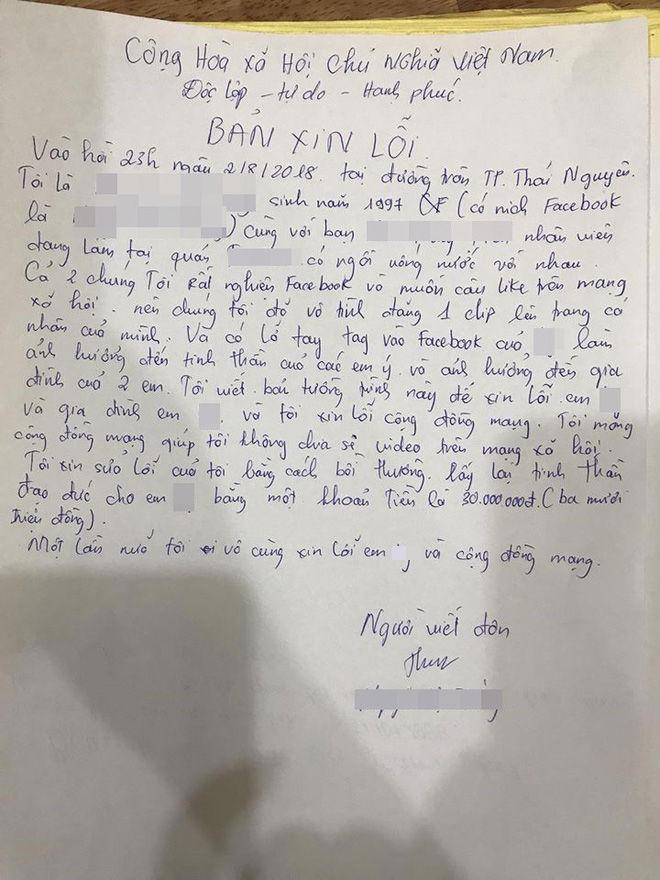 Cộng Hoà xã Hội Chủ Nghĩa Việt Nam.
Độc lập - tự do - Hạnh phúc.
BẢN XIN LỖI
Vào hồi 23h ngày 2/8/2018. tại đường tròn TP. Thái Nguyên.
Tôi là sinh năm 1997 (có nick Facebook
là ) cùng với bạn nhân viên
đang làm tại quán có ngồi uống nước với nhau.
Cả 2 chúng Tôi rất nghiện Facebook và muốn câu like trên mạng
xã hội. nên chúng tôi đã vô tình đăng 1 clip lên trang cá
nhân của mình. Và có lỡ tay tag vào Facebook của làm
ảnh hưởng đến tinh thần của các em ý và ảnh hưởng đến gia
đình của 2 em. Tôi viết bản tường trình này để xin lỗi em
và gia đình em . và tôi xin lỗi cộng đồng mạng. Tôi mong
cộng đồng mạng giúp tôi không chia sẻ video trên mạng xã hội.
Tôi xin sửa lỗi của tôi bằng cách bồi thường. lấy lại tinh thần
đạo đức cho em bằng một khoản Tiền là 30.000.000đ. (ba mươi
triệu đồng).
Một lần nữa tôi vô cùng xin lỗi em , và cộng đồng mạng.
Người viết đơn